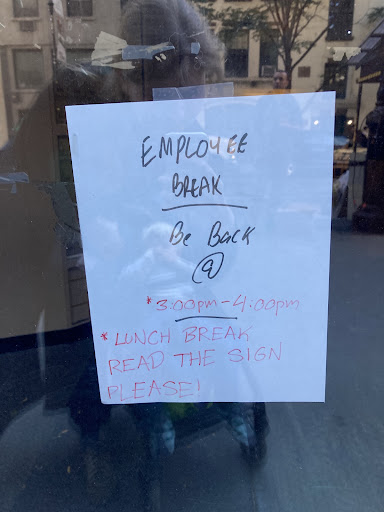 EMPLOYEE
BREAK
Be Back
@
* 3:00pm - 4:00pm
* LUNCH BREAK
READ THE SIGN
PLEASE!